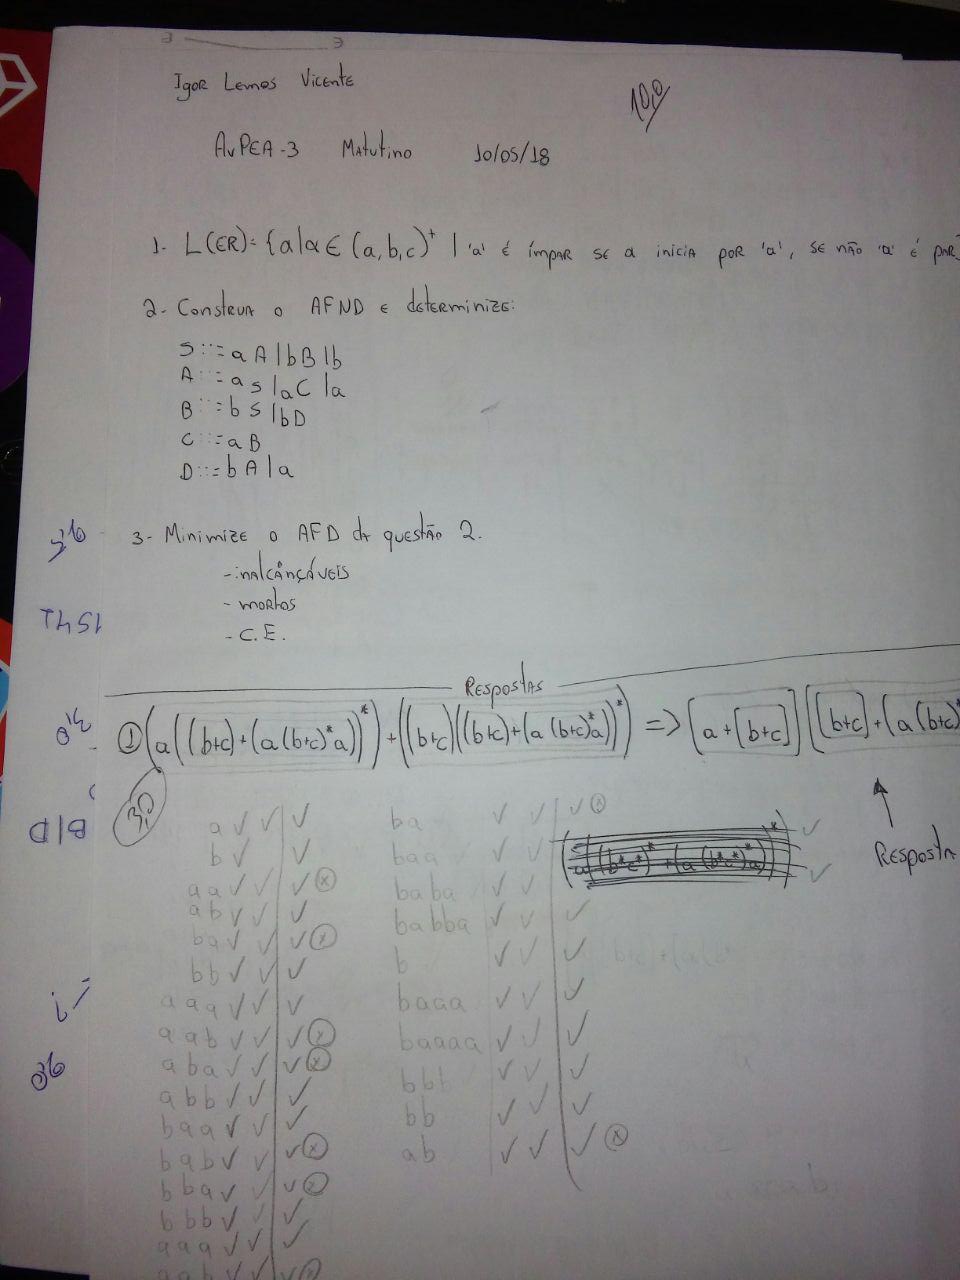 Igor Lemos Vicente
10,0
AvPEA-3 Matutino 10/05/18
1- L(ER)= {α|α ∈ (a,b,c)⁺ | 'a' é ímpar se α inicia por 'a', se não 'a' é par}
2- Construa o AFND e determinize:
S::=aA|bB|b
A::=aS|aC|a
B::=bS|bD
C::=aB
D::=bA|a
3- Minimize o AFD da questão 2.
-inalcânçáveis
- mortos
- C.E.
Respostas
① (a((b+c)+(a(b+c)*a))*)+((b+c)((b+c)+(a(b+c)*a))*) => [a+[b+c]]([b+c]+(a(b+c)*
3,0
Resposta
a ✓ ✓ ✓ ba ✓ ✓ ✓ ⓧ
b ✓ ✓ baa ✓ ✓
aa ✓ ✓ ✓ ⓧ baba ✓ ✓
ab ✓ ✓ ✓ babba ✓ ✓ ✓
ba ✓ ✓ ✓ ⓧ b ✓ ✓ ✓
bb ✓ ✓ ✓ baaa ✓ ✓ ✓
aaa ✓ ✓ ✓ baaaa ✓ ✓ ✓
aab ✓ ✓ ✓ ⓧ bbb ✓ ✓ ✓
aba ✓ ✓ ✓ ⓧ bb ✓ ✓ ✓
abb ✓ ✓ ✓ ab ✓ ✓ ✓ ⓧ
baa ✓ ✓ ✓
bab ✓ ✓ ✓ ⓧ
bba ✓ ✓ ✓ ⓧ
bbb ✓ ✓ ✓
aaa ✓ ✓ ✓
aab ✓ ✓ ✓ ⓧ